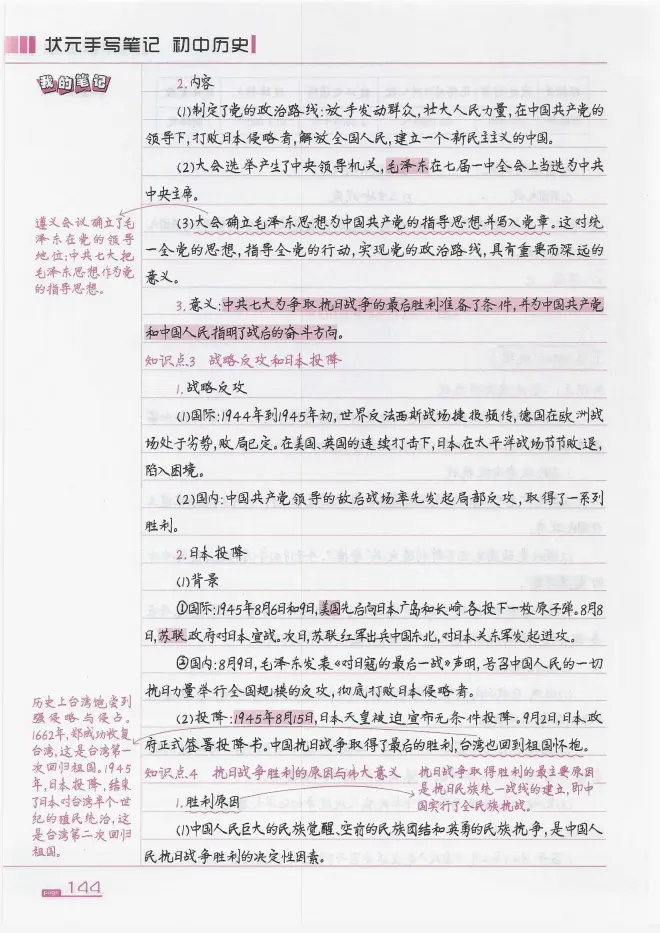 状元手写笔记 初中历史
我的笔记
2.内容
(1)制定了党的政治路线:放手发动群众,壮大人民力量,在中国共产党的
领导下,打败日本侵略者,解放全国人民,建立一个新民主主义的中国。
(2)大会选举产生了中央领导机关,毛泽东在七届一中全会上当选为中共
中央主席。
(3)大会确立毛泽东思想为中国共产党的指导思想并写入党章。这对统
一全党的思想,指导全党的行动,实现党的政治路线,具有重要而深远的
意义。
遵义会议确立了毛
泽东在党的领导
地位;中共七大把
毛泽东思想作为党
的指导思想。
3.意义:中共七大为争取抗日战争的最后胜利准备了条件,并为中国共产党
和中国人民指明了战后的奋斗方向。
知识点3 战略反攻和日本投降
1.战略反攻
(1)国际:1944年到1945年初,世界反法西斯战场捷报频传,德国在欧洲战
场处于劣势,败局已定。在美国、英国的连续打击下,日本在太平洋战场节节败退,
陷入困境。
(2)国内:中国共产党领导的敌后战场率先发起局部反攻,取得了一系列
胜利。
2.日本投降
(1)背景
①国际:1945年8月6日和9日,美国先后向日本广岛和长崎各投下一枚原子弹。8月8
日,苏联政府对日本宣战。次日,苏联红军出兵中国东北,对日本关东军发起进攻。
②国内:8月9日,毛泽东发表《对日寇的最后一战》声明,号召中国人民的一切
抗日力量举行全国规模的反攻,彻底打败日本侵略者。
(2)投降:1945年8月15日,日本天皇被迫宣布无条件投降。9月2日,日本政
府正式签署投降书。中国抗日战争取得了最后的胜利,台湾也回到祖国怀抱。
历史上台湾饱尝到
强侵略与侵占。
1662年,郑成功收复
台湾,这是台湾第一
次回归祖国。1945
年,日本投降,结束
了日本对台湾半个世
纪的殖民统治,这
是台湾第二次回归
祖国。
知识点4 抗日战争胜利的原因与伟大意义
抗日战争取得胜利的最主要原因
是抗日民族统一战线的建立,即中
国实行了全民族抗战。
1.胜利原因
(1)中国人民巨大的民族觉醒、空前的民族团结和英勇的民族抗争,是中国人
民抗日战争胜利的决定性因素。
page 144